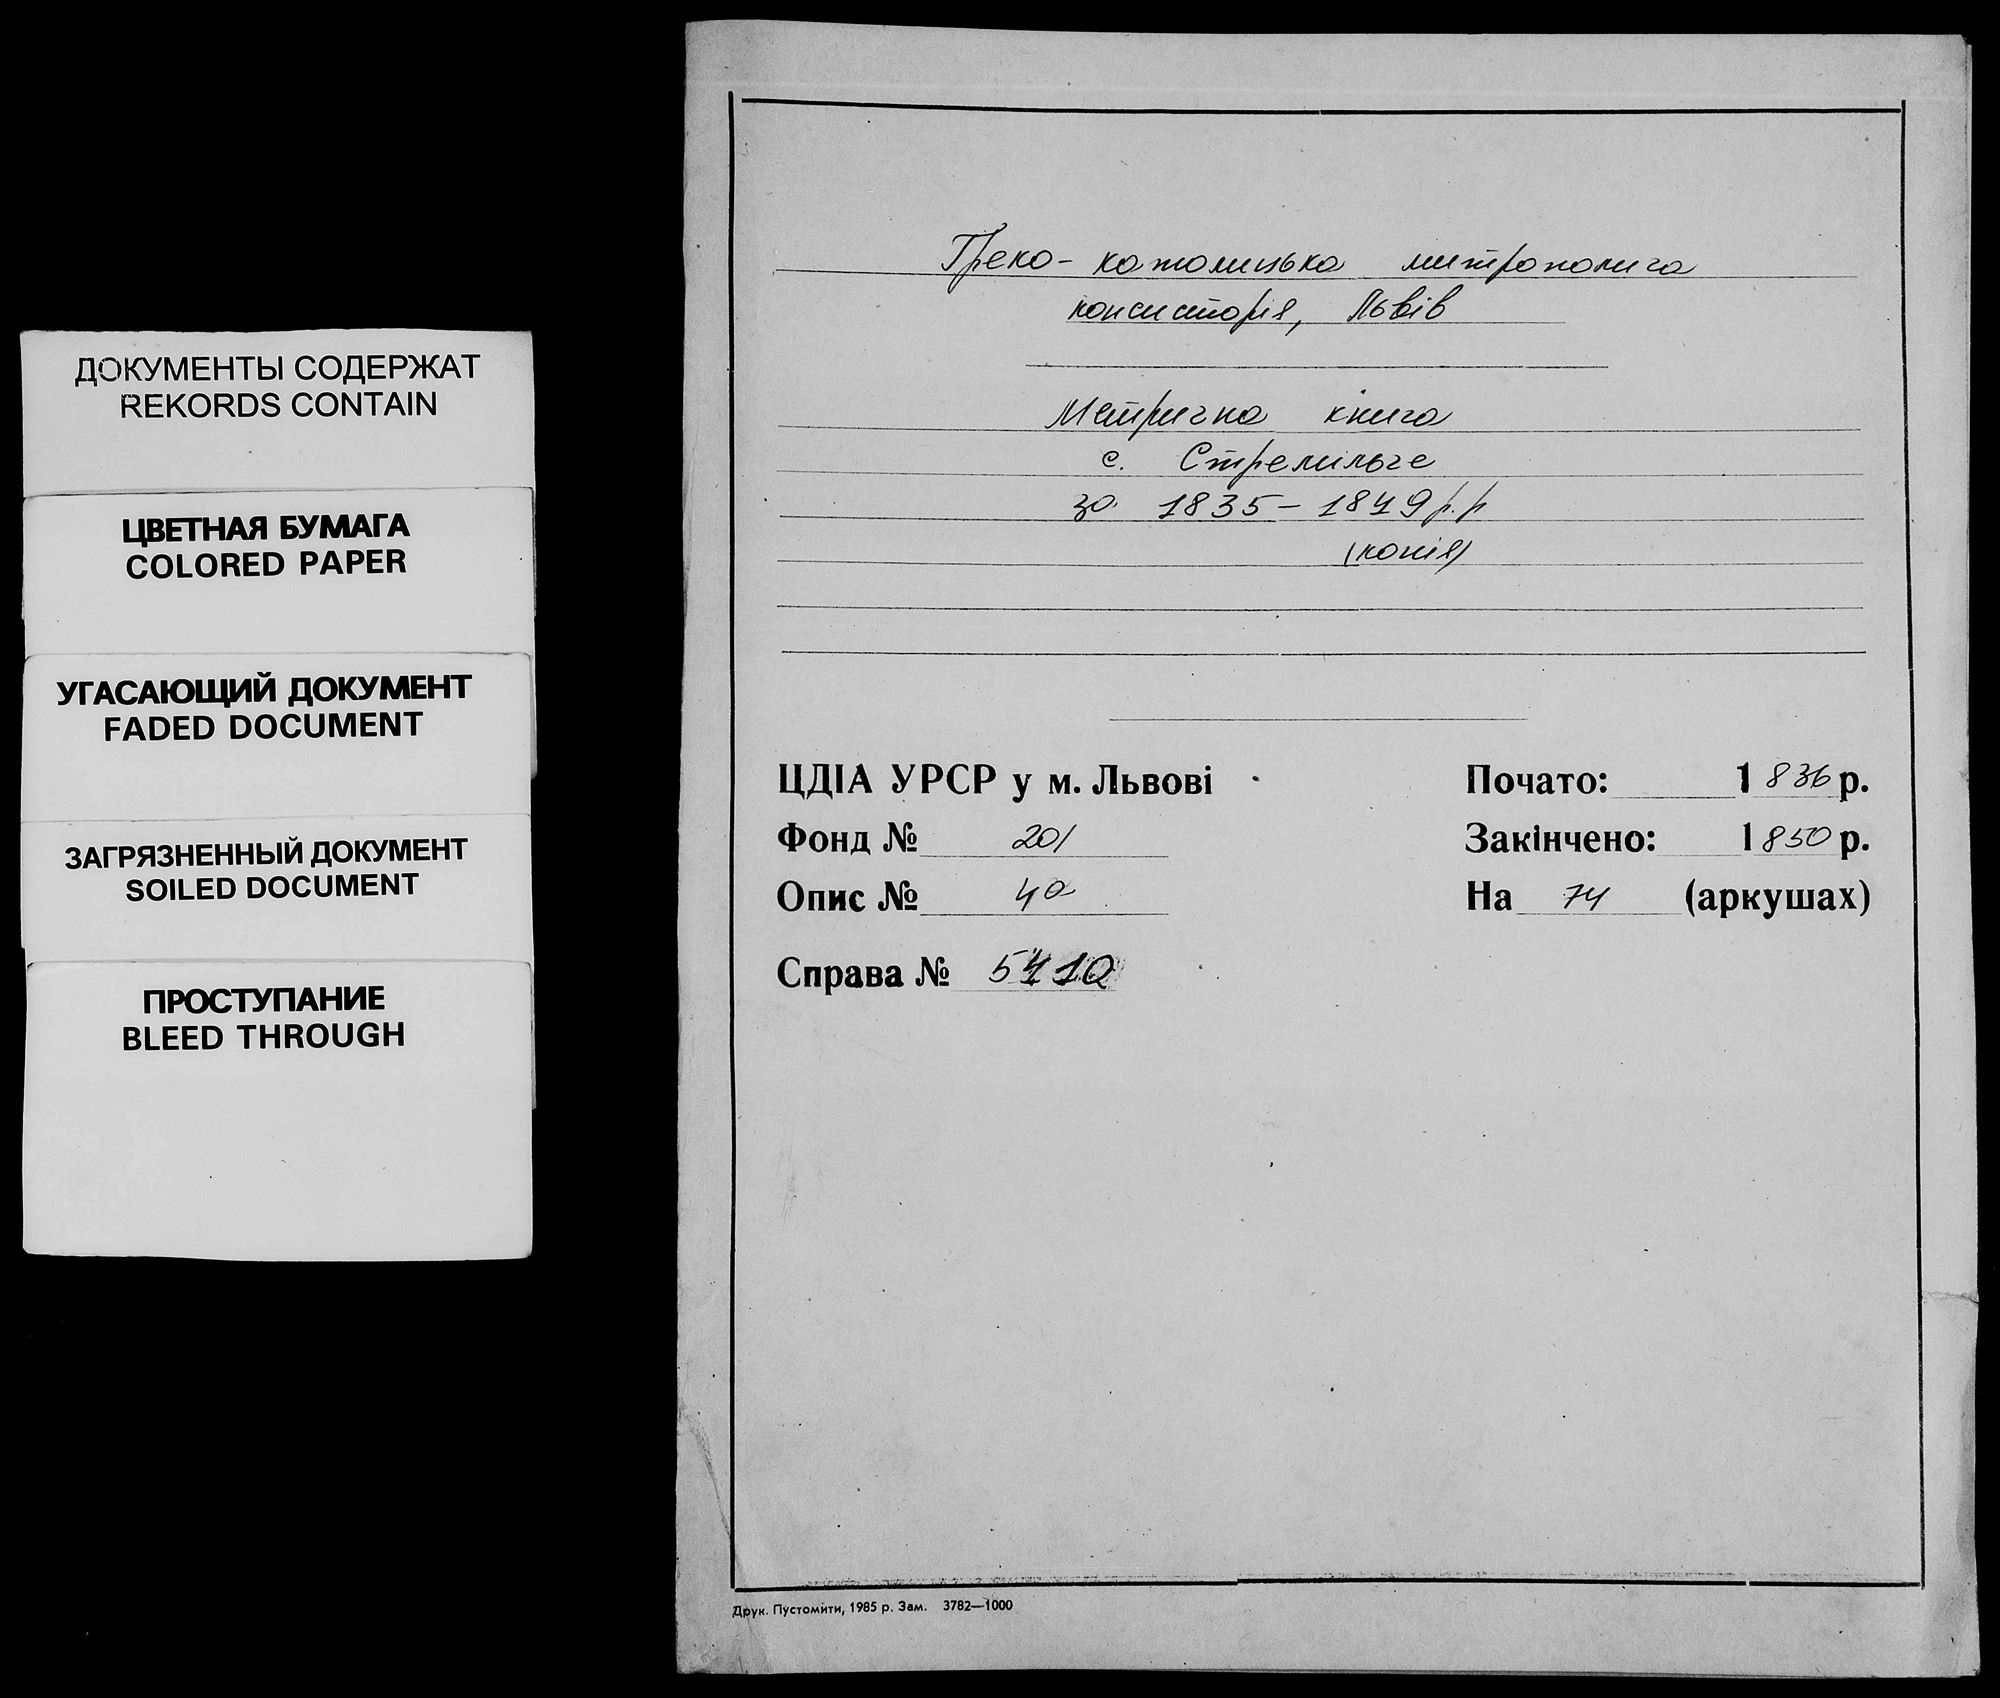 ДОКУМЕНТЫ СОДЕРЖАТ
REKORDS CONTAIN
ЦВЕТНАЯ БУМАГА
COLORED PAPER
УГАСАЮЩИЙ ДОКУМЕНТ
FADED DOCUMENT
ЗАГРЯЗНЕННЫЙ ДОКУМЕНТ
SOILED DOCUMENT
ПРОСТУПАНИЕ
BLEED THROUGH
Греко-католицька митрополича
консисторія, Львів
Метрична книга
с. Стремільче
за 1835-1849 р.р
(копія)
ЦДІА УРСР у м. Львові
Фонд № 201
Опис № 4а
Справа №
Почато: 1836 р.
Закінчено: 1850 р.
На 74 (аркушах)
Друк. Пустомити, 1985 р. Зам. 3782—1000